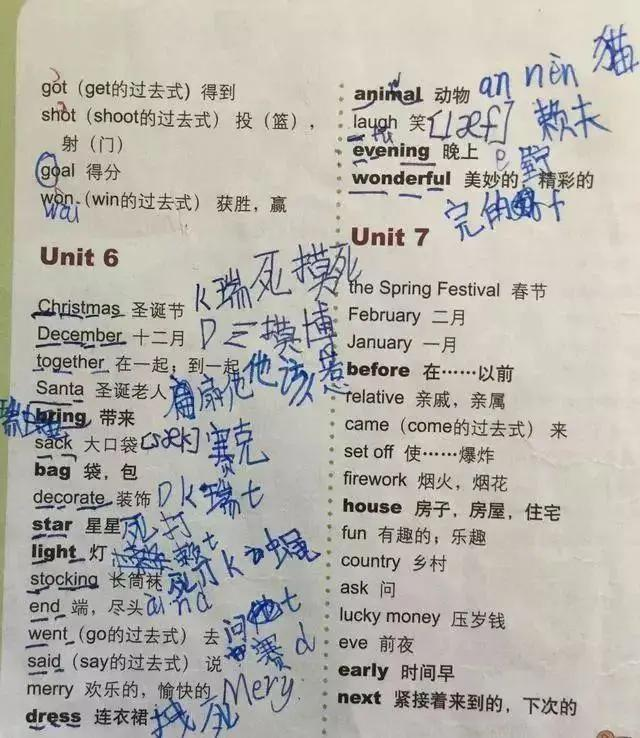 got（get的过去式）得到
shot（shoot的过去式）投（篮），
射（门）
goal 得分
won（win的过去式）获胜，赢
wai
Unit 6
Christmas 圣诞节 K瑞死摸死
December 十二月 D三摸博
together 在一起；到一起
Santa 圣诞老人 他该惹
bring 带来
sack 大口袋 [sæk] 赛克
bag 袋，包
decorate 装饰 Dk瑞t
star 星星 死打
light 灯 赖t
stocking 长筒袜 死 k
end 端，尽头 aind
went（go的过去式）去 问 t
said（say的过去式）说 赛d
merry 欢乐的，愉快的 Mery
dress 连衣裙
animal 动物 an nèn 猫
laugh 笑 [læf] 赖夫
evening 晚上 e 野
wonderful 美妙的，精彩的
完
Unit 7
the Spring Festival 春节
February 二月
January 一月
before 在……以前
relative 亲戚，亲属
came（come的过去式）来
set off 使……爆炸
firework 烟火，烟花
house 房子，房屋，住宅
fun 有趣的；乐趣
country 乡村
ask 问
lucky money 压岁钱
eve 前夜
early 时间早
next 紧接着来到的，下次的